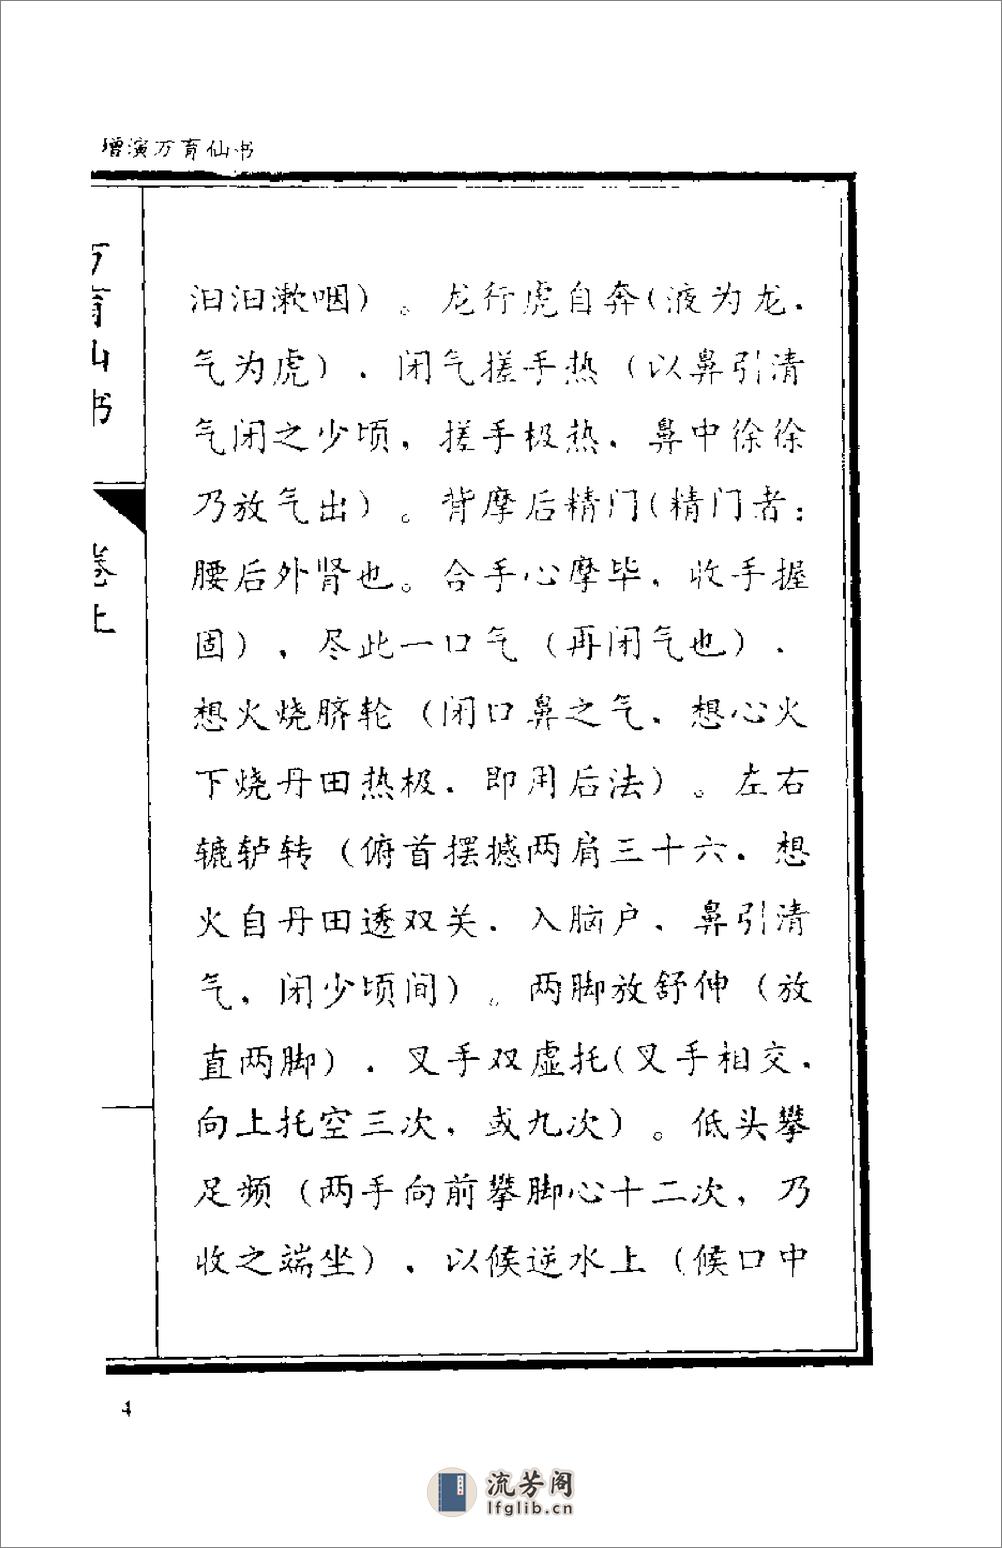 增演万育仙书
万育仙书
卷上
汩汩漱咽）。龙行虎自奔（液为龙，
气为虎），闭气搓手热（以鼻引清
气闭之少顷，搓手极热，鼻中徐徐
乃放气出）。背摩后精门（精门者：
腰后外肾也。合手心摩毕，收手握
固），尽此一口气（再闭气也），
想火烧脐轮（闭口鼻之气，想心火
下烧丹田热极，即用后法）。左右
辘轳转（俯首摆撼两肩三十六，想
火自丹田透双关，入脑户，鼻引清
气，闭少顷间）。两脚放舒伸（放
直两脚），叉手双虚托（叉手相交，
向上托空三次，或九次）。低头攀
足频（两手向前攀脚心十二次，乃
收之端坐），以候逆水上（候口中
4
流芳阁
lfglib.cn